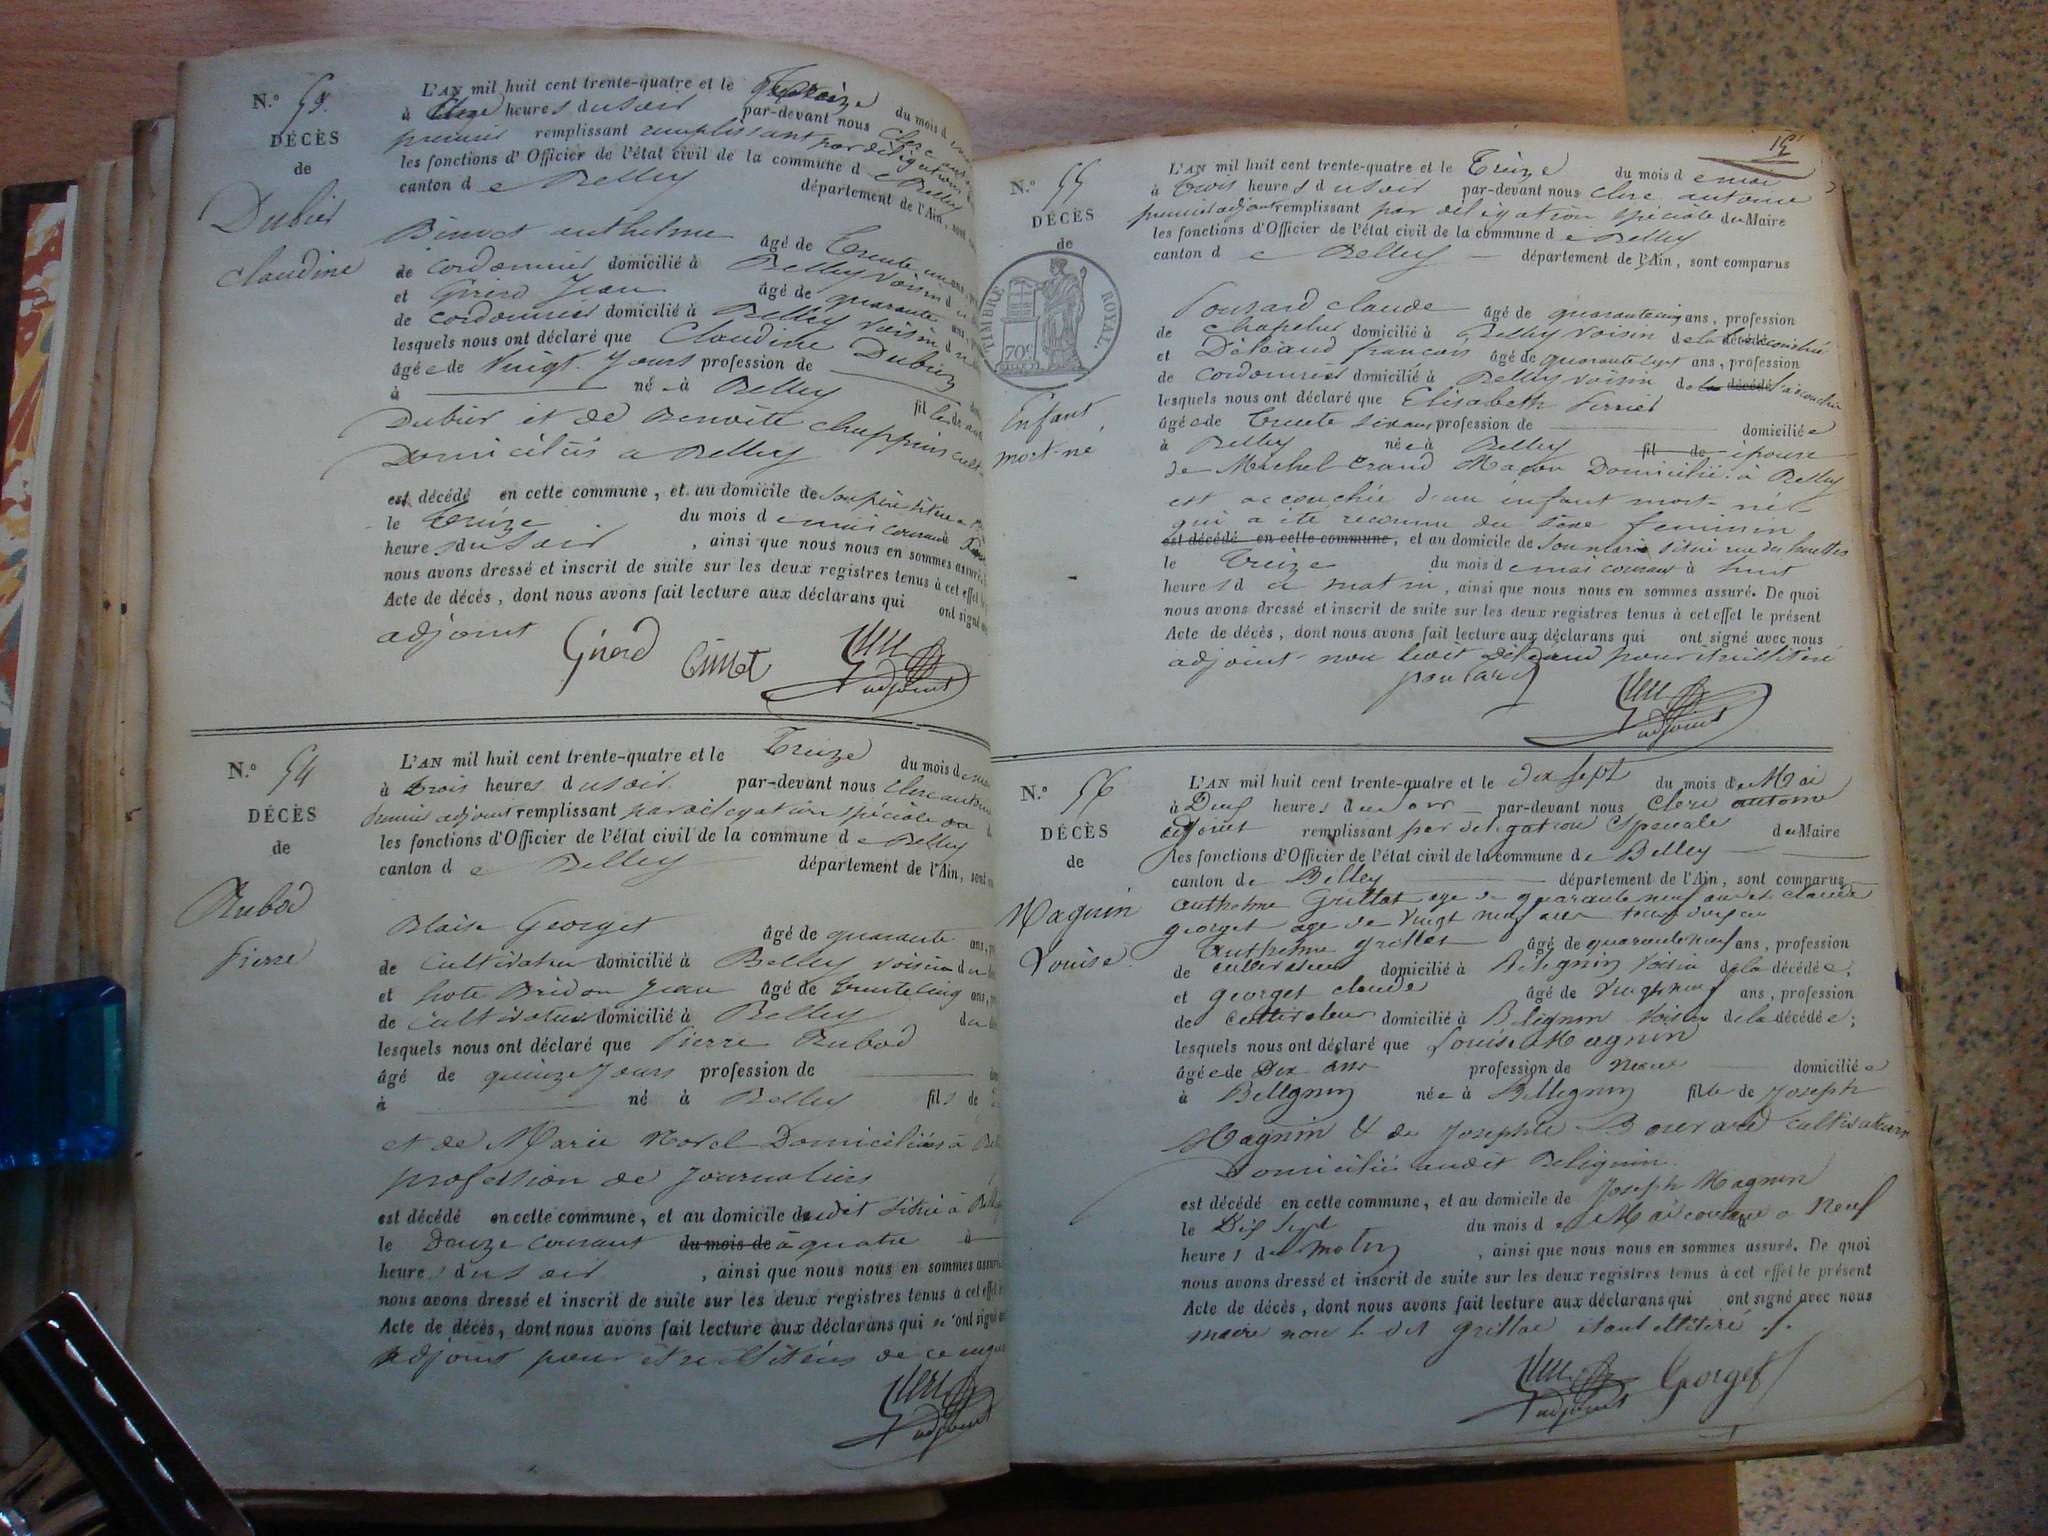 N.º 53.
DÉCÈS
de
Dubier
Claudine
L'AN mil huit cent trente-quatre et le treize du mois d
à heures du soir par-devant nous Clerc
premier remplissant remplissant par délégation
les fonctions d'Officier de l'état civil de la commune de Belley
canton de Belley département de l'Ain,
Binvet anthelme âgé de Trente
de cordonnier domicilié à Belley voisin d
et Girerd Jean âgé de quarante ans,
de cordonnier domicilié à Belley voisin d
lesquels nous ont déclaré que Claudine Dubier
âgée de Vingt Jours profession de
à né à Belley fille de
Dubier et de Benoite Chappuis
Domiciliés a Belley
est décédé en cette commune, et au domicile de son père situé a
le Treize du mois de mai courant
heures du soir, ainsi que nous nous en sommes assuré.
nous avons dressé et inscrit de suite sur les deux registres tenus à cet effet
Acte de décès, dont nous avons fait lecture aux déclarans qui ont signé
adjoint
N.º 54
DÉCÈS
de
Rubod
Pierre
L'AN mil huit cent trente-quatre et le Treize du mois de
à trois heures du soir par-devant nous Clerc antoine
premier adjoint remplissant par délégation spéciale
les fonctions d'Officier de l'état civil de la commune de Belley
canton de Belley département de l'Ain,
Blaise Georget âgé de quarante ans,
de Cultivateur domicilié à Belley voisin du
et hote Bridon Jean âgé de trente cinq ans,
de Cultivateur domicilié à Belley du
lesquels nous ont déclaré que Pierre Rubod
âgé de quinze Jours profession de
à né à Belley fils de
et de Marie Morel Domiciliés à
profession de Journaliers
est décédé en cette commune, et au domicile dudit situé à
le Douze courant du mois de à quatre à
heures du soir, ainsi que nous nous en sommes assuré
nous avons dressé et inscrit de suite sur les deux registres tenus à cet effet
Acte de décès, dont nous avons fait lecture aux déclarans qui n'ont signé
adjoint pour être illitérés de ce enquis
adjoint
N.º 55
DÉCÈS
de
TIMBRE ROYAL.
70c
Enfant
mort-né
L'AN mil huit cent trente-quatre et le Treize du mois de mai
à trois heures du soir par-devant nous Clerc antoine
premier adjoint remplissant par délégation spéciale du Maire
les fonctions d'Officier de l'état civil de la commune de Belley
canton de Belley département de l'Ain, sont comparus
Poutard Claude âgé de quarante cinq ans, profession
de Chapelier domicilié à Belley voisin de la décédé
et françois âgé de quarante sept ans, profession
de Cordonnier domicilié à Belley voisin de la décédé l'accouchée
lesquels nous ont déclaré que Elisabeth Perrier
âgée de Trente six ans profession de domiciliée
à Belley née à Belley fil de épouse
de Michel Maçon Domicilié à Belley
est accouchée d'un enfant mort-né
qui a été reconnu du sexe feminin
est décédé en cette commune, et au domicile de son mari situé rue des
le Treize du mois de mai courant à huit
heures du matin, ainsi que nous nous en sommes assuré. De quoi
nous avons dressé et inscrit de suite sur les deux registres tenus à cet effet le présent
Acte de décès, dont nous avons fait lecture aux déclarans qui ont signé avec nous
adjoint non ledit pour être illitéré
poutard
adjoint
N.º 56
DÉCÈS
de
Magnin
Louise
L'AN mil huit cent trente-quatre et le dix sept du mois de Mai
à Deux heures du soir par-devant nous Clerc antoine
adjoint remplissant par délégation Spéciale du Maire
les fonctions d'Officier de l'état civil de la commune de Belley
canton de Belley département de l'Ain, sont comparus
anthelme Grillot age de quarante neuf ans et claude
georget age de vingt neuf ans
anthelme grillot âgé de quarante neuf ans, profession
de cultivateur domicilié à Bélignin voisin de la décédée;
et georget claude âgé de vingt neuf ans, profession
de cultivateur domicilié à Bélignin voisin de la décédée;
lesquels nous ont déclaré que Louise Magnin
âgée de Dix ans profession de domiciliée
à Bellignin née à Bellignin fille de Joseph
Magnin & de Josephte Bouvard cultivateurs
Domiciliés audit Bélignin
est décédé en cette commune, et au domicile de Joseph Magnin
le Dix Sept du mois de Mai courant à neuf
heures du matin, ainsi que nous nous en sommes assuré. De quoi
nous avons dressé et inscrit de suite sur les deux registres tenus à cet effet le présent
Acte de décès, dont nous avons fait lecture aux déclarans qui ont signé avec nous
maire non le dit grillot étant illitéré
adjoint Georget